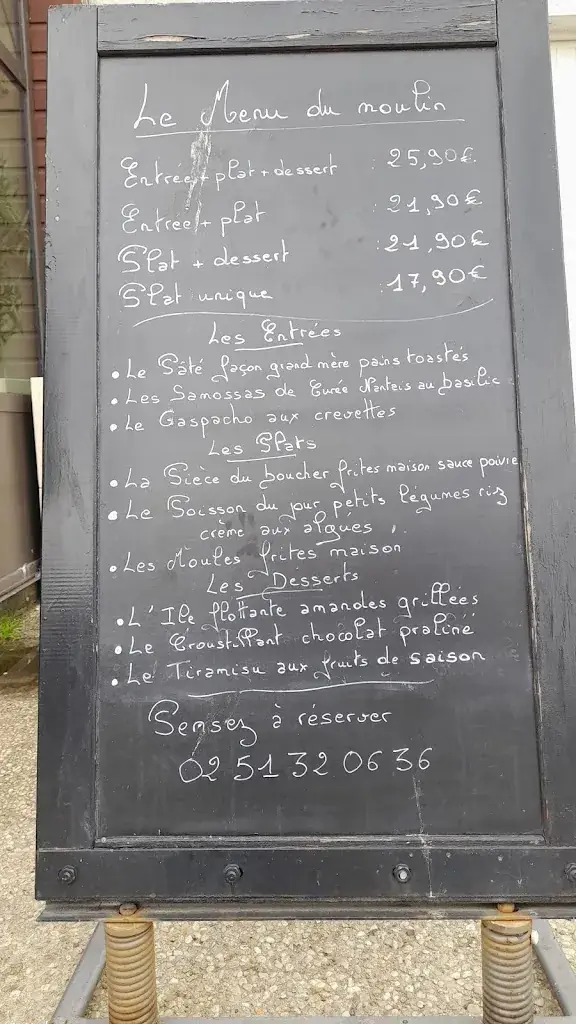 Le Menu du moulin
Entrée + plat + dessert : 25,90€
Entrée + plat : 21,90€
Plat + dessert : 21,90€
Plat unique : 17,90€
Les Entrées
• Le Pâté façon grand mère pains toastés
• Les Samossas de Curé Nantais au basilic
• Le Gaspacho aux crevettes
Les Plats
• La Pièce du boucher frites maison sauce poivre
• Le Poisson du jour petits légumes riz
crème aux algues
• Les Moules frites maison
Les Desserts
• L'Ile flottante amandes grillées
• Le Croustillant chocolat praliné
• Le Tiramisu aux fruits de saison
Pensez à réserver
02 51 32 06 36